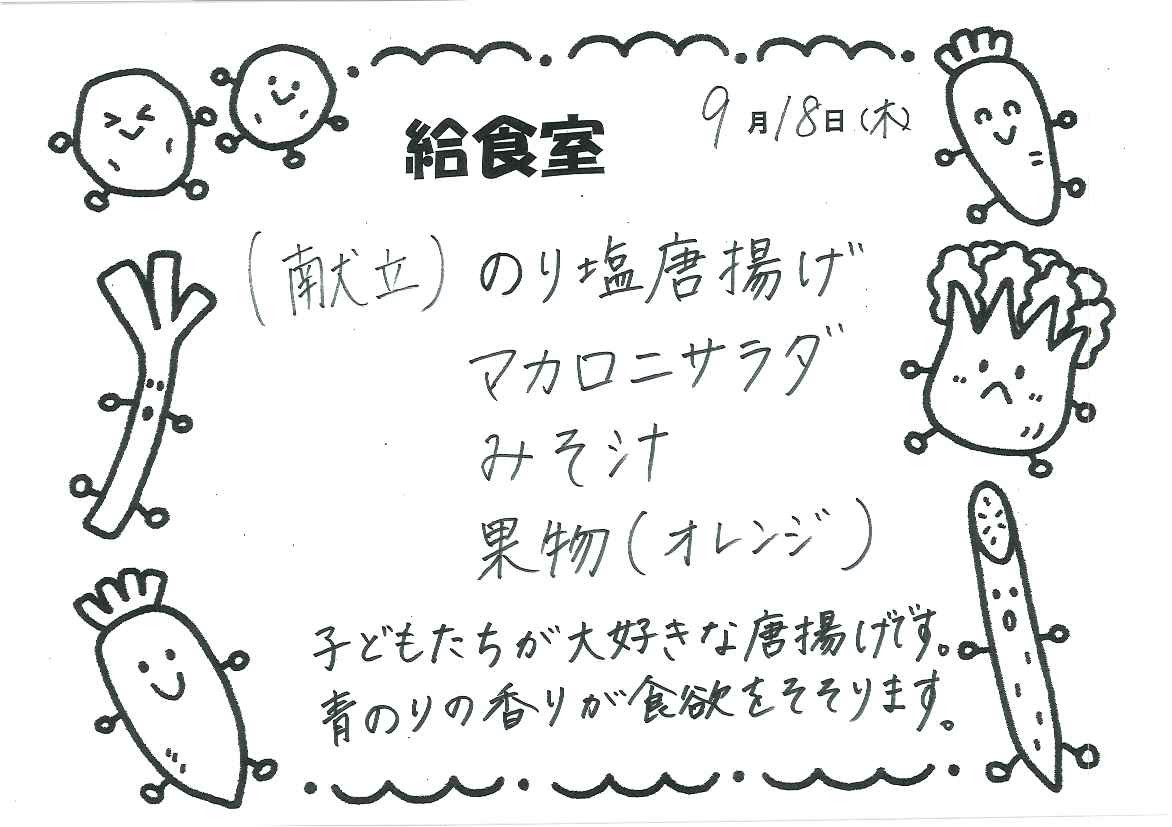 給食室
9月18日(木)
(献立)のり塩唐揚げ
マカロニサラダ
みそ汁
果物(オレンジ)
子どもたちが大好きな唐揚げです。
青のりの香りが食欲をそそります。